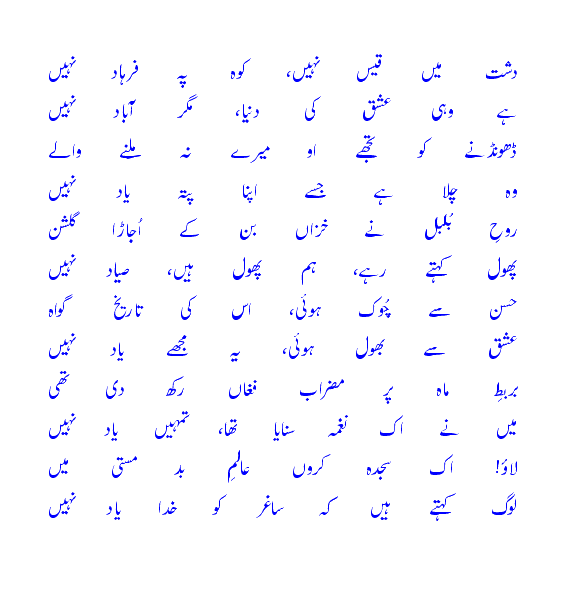 دشت میں قیس نہیں، کوہ پہ فرہاد نہیں
ہے وہی عشق کی دنیا، مگر آباد نہیں
ڈھونڈنے کو تجھے او میرے نہ ملنے والے
وہ چلا ہے جسے اپنا پتہ یاد نہیں
روحِ بُلبل نے خزاں بن کے اُجاڑا گلشن
پھول کہتے رہے، ہم پھول ہیں، صیاد نہیں
حسن سے چُوک ہوئی، اس کی تاریخ گواہ
عشق سے بھول ہوئی، یہ مجھے یاد نہیں
بربطِ ماہ پر مضراب فغاں رکھ دی تھی
میں نے اک نغمہ سنایا تھا، تمہیں یاد نہیں
لاؤ! اک سجدہ کروں عالمِ بد مستی میں
لوگ کہتے ہیں کہ ساغر کو خدا یاد نہیں